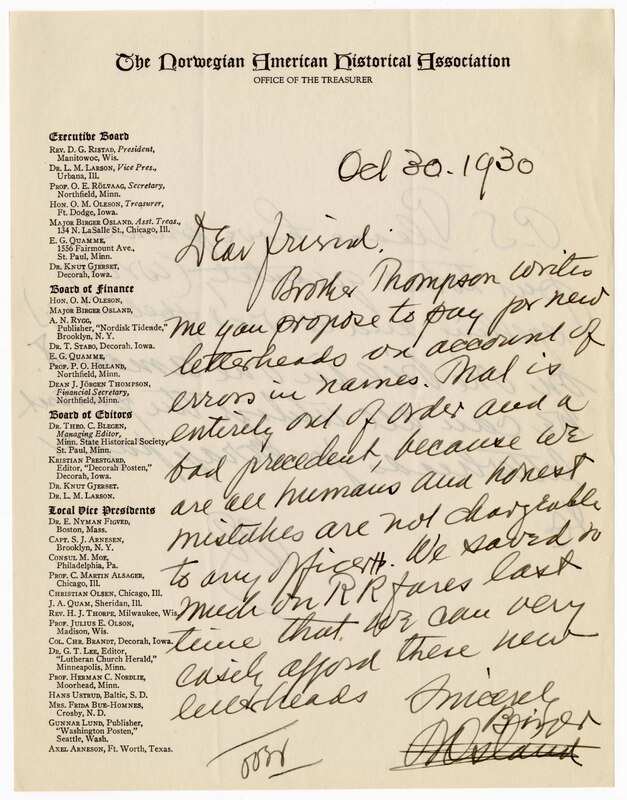 The Norwegian American Historical Association
OFFICE OF THE TREASURER
Executive Board
REV. D. G. RISTAD, President,
Manitowoc, Wis.
DR. L. M. LARSON, Vice Pres.,
Urbana, Ill.
PROF. O. E. RÖLVAAG, Secretary,
Northfield, Minn.
HON. O. M. OLESON, Treasurer,
Ft. Dodge, Iowa.
MAJOR BIRGER OSLAND, Asst. Treas.,
134 N. LaSalle St., Chicago, Ill.
E. G. QUAMME,
1556 Fairmount Ave.,
St. Paul, Minn.
DR. KNUT GJERSET,
Decorah, Iowa.
Board of Finance
HON. O. M. OLESON,
MAJOR BIRGER OSLAND,
A. N. RYGG,
Publisher, "Nordisk Tidende,"
Brooklyn, N. Y.
DR. T. STABO, Decorah, Iowa.
E. G. QUAMME,
PROF. P. O. HOLLAND,
Northfield, Minn.
DEAN J. JÖRGEN THOMPSON,
Financial Secretary,
Northfield, Minn.
Board of Editors
DR. THEO. C. BLEGEN,
Managing Editor,
Minn. State Historical Society,
St. Paul, Minn.
KRISTIAN PRESTGARD,
Editor, "Decorah Posten,"
Decorah, Iowa.
DR. KNUT GJERSET.
DR. L. M. LARSON.
Local Vice Presidents
DR. E. NYMAN FIGVED,
Boston, Mass.
CAPT. S. J. ARNESEN,
Brooklyn, N. Y.
CONSUL M. MOE,
Philadelphia, Pa.
PROF. C. MARTIN ALSAGER,
Chicago, Ill.
CHRISTIAN OLSEN, Chicago, Ill.
J. A. QUAM, Sheridan, Ill.
REV. H. J. THORPE, Milwaukee, Wis.
PROF. JULIUS E. OLSON,
Madison, Wis.
COL. CHR. BRANDT, Decorah, Iowa.
DR. G. T. LEE, Editor,
"Lutheran Church Herald,"
Minneapolis, Minn.
PROF. HERMAN C. NORDLIE,
Moorhead, Minn.
HANS USTRUD, Baltic, S. D.
MRS. FRIDA BUE-HOMNES,
Crosby, N. D.
GUNNAR LUND, Publisher,
"Washington Posten,"
Seattle, Wash.
AXEL ARNESON, Ft. Worth, Texas.
Oct 30. 1930
Dear friend:
Brother Thompson writes
me you propose to pay for new
letterheads on account of
errors in names. That is
entirely out of order and a
bad precedent, because we
are all humans and honest
mistakes are not chargeable
to any officer. We saved so
much on RR fares last
time that we can very
easily afford these new
letterheads
Sincerely
Birger
Osland
over